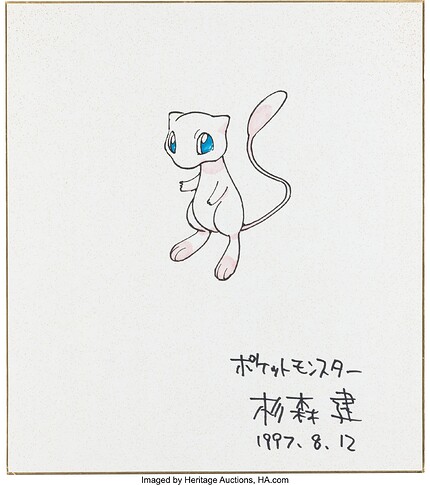 ポケットモンスター
杉森 建
1997.8.12
Imaged by Heritage Auctions, HA.com